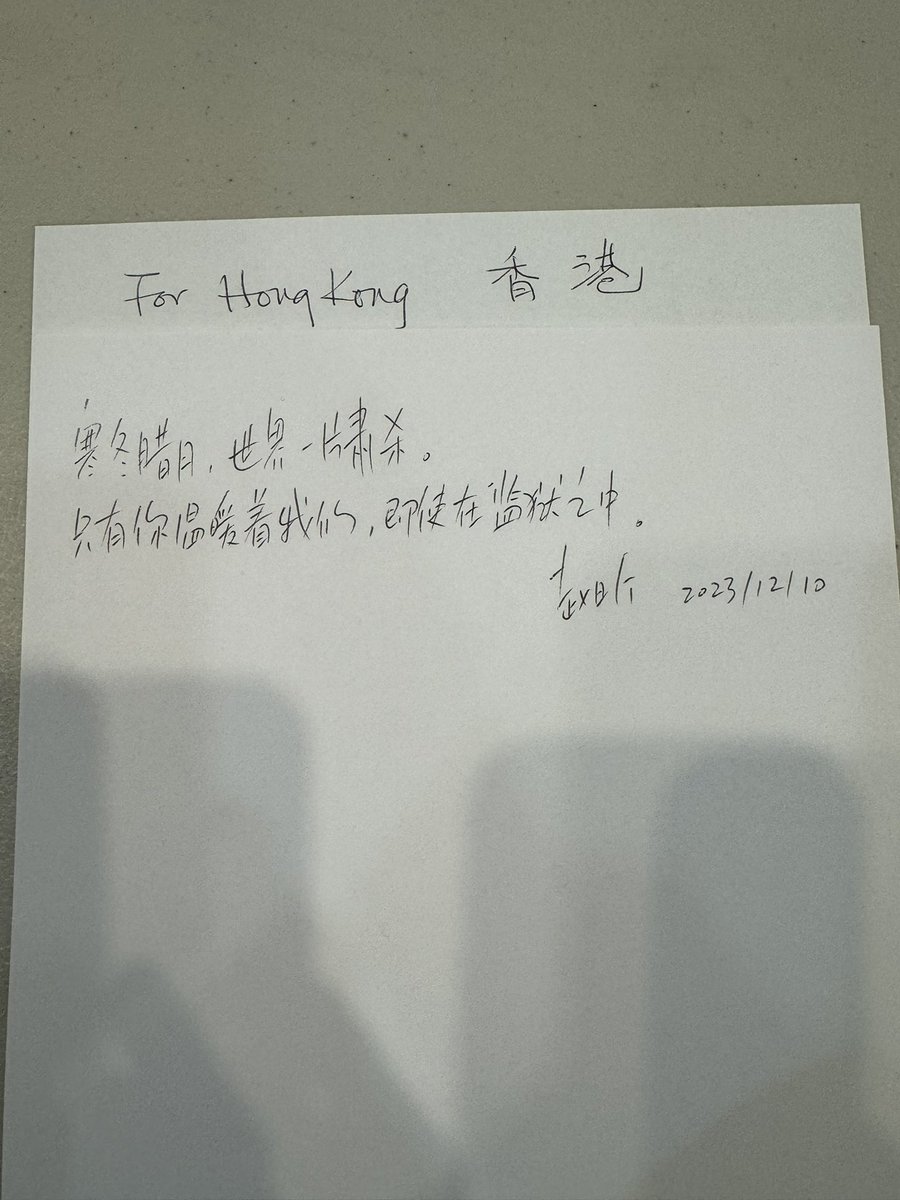 For Hong Kong 香港
寒冬腊月，世界一片肃杀。
只有你温暖着我们，即使在监狱之中。
赵昕 2023/12/10